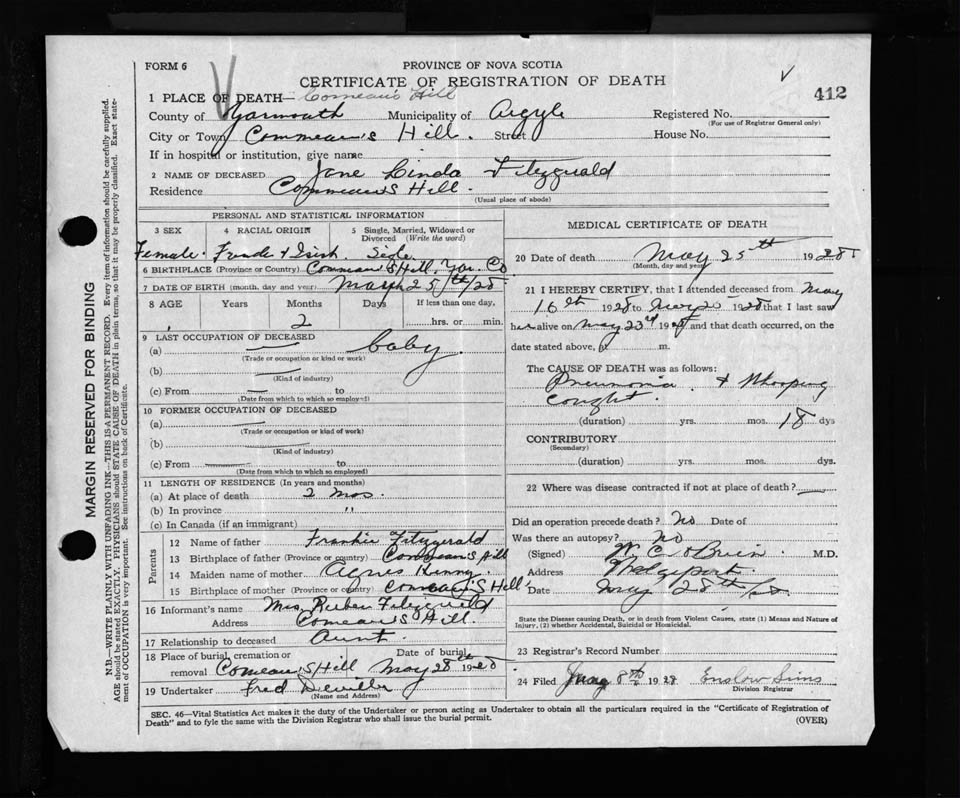 FORM 6
PROVINCE OF NOVA SCOTIA
CERTIFICATE OF REGISTRATION OF DEATH
412
1 PLACE OF DEATH— Comeau's Hill
County of Yarmouth Municipality of Argyle Registered No.
(For use of Registrar General only)
City or Town Commeau's Hill. Street House No.
If in hospital or institution, give name
2 NAME OF DECEASED Jane Linda Fitzgerald
Residence Commeau's Hill.
(Usual place of abode)
PERSONAL AND STATISTICAL INFORMATION
3 SEX 4 RACIAL ORIGIN 5 Single, Married, Widowed or Divorced (Write the word)
Female. & Irish.
6 BIRTHPLACE (Province or Country) Commeau's Hill, Yar. Co
7 DATE OF BIRTH (month, day and year) March 25th/28
8 AGE Years Months Days If less than one day,
2 hrs. or min.
9 LAST OCCUPATION OF DECEASED
(a) baby.
(Trade or occupation or kind or work)
(b)
(Kind of industry)
(c) From to
(Date from which to which so employed)
10 FORMER OCCUPATION OF DECEASED
(a)
(Trade or occupation or kind of work)
(b)
(Kind of industry)
(c) From to
(Date from which to which so employed)
11 LENGTH OF RESIDENCE (In years and months)
(a) At place of death 2 mos.
(b) In province "
(c) In Canada (if an immigrant)
Parents
12 Name of father Frankie Fitzgerald
13 Birthplace of father (Province or country) Comeau's Hill
14 Maiden name of mother Agnes Kenny.
15 Birthplace of mother (Province or country) Comeau's Hill
16 Informant's name Mrs. Reuben Fitzgerald
Address Comeau's Hill.
17 Relationship to deceased Aunt.
18 Place of burial, cremation or removal Comeau's Hill Date of burial May 28th 1928
19 Undertaker Fred
(Name and Address)
MEDICAL CERTIFICATE OF DEATH
20 Date of death May 25th 1928
(Month, day and year)
21 I HEREBY CERTIFY, that I attended deceased from May
16th 1928 to May 25 1928 that I last saw
her alive on May 23rd 1928 and that death occurred, on the
date stated above, at m.
The CAUSE OF DEATH was as follows:
Pneumonia & Whooping
Cought.
(duration) yrs. mos. 18 dys
CONTRIBUTORY
(Secondary)
(duration) yrs. mos. dys.
22 Where was disease contracted if not at place of death?
Did an operation precede death? No Date of
Was there an autopsy? No
(Signed) W. C. O'Brien M.D.
Address Wedgeport.
Date May 28th/28
State the Disease causing Death, or in death from Violent Causes, state (1) Means and Nature of
Injury, (2) whether Accidental, Suicidal or Homicidal.
23 Registrar's Record Number
24 Filed 8th 1928 Enslow Sims
Division Registrar
SEC. 46—Vital Statistics Act makes it the duty of the Undertaker or person acting as Undertaker to obtain all the particulars required in the "Certificate of Registration of
Death" and to fyle the same with the Division Registrar who shall issue the burial permit.
(OVER)
MARGIN RESERVED FOR BINDING
N.B.—WRITE PLAINLY WITH UNFADING INK—THIS IS A PERMANENT RECORD. Every item of information should be carefully supplied.
AGE should be stated EXACTLY. PHYSICIANS should STATE CAUSE OF DEATH in plain terms, so that it may be properly classified. Exact state-
ment of OCCUPATION is very important. See instructions on back of Certificate.